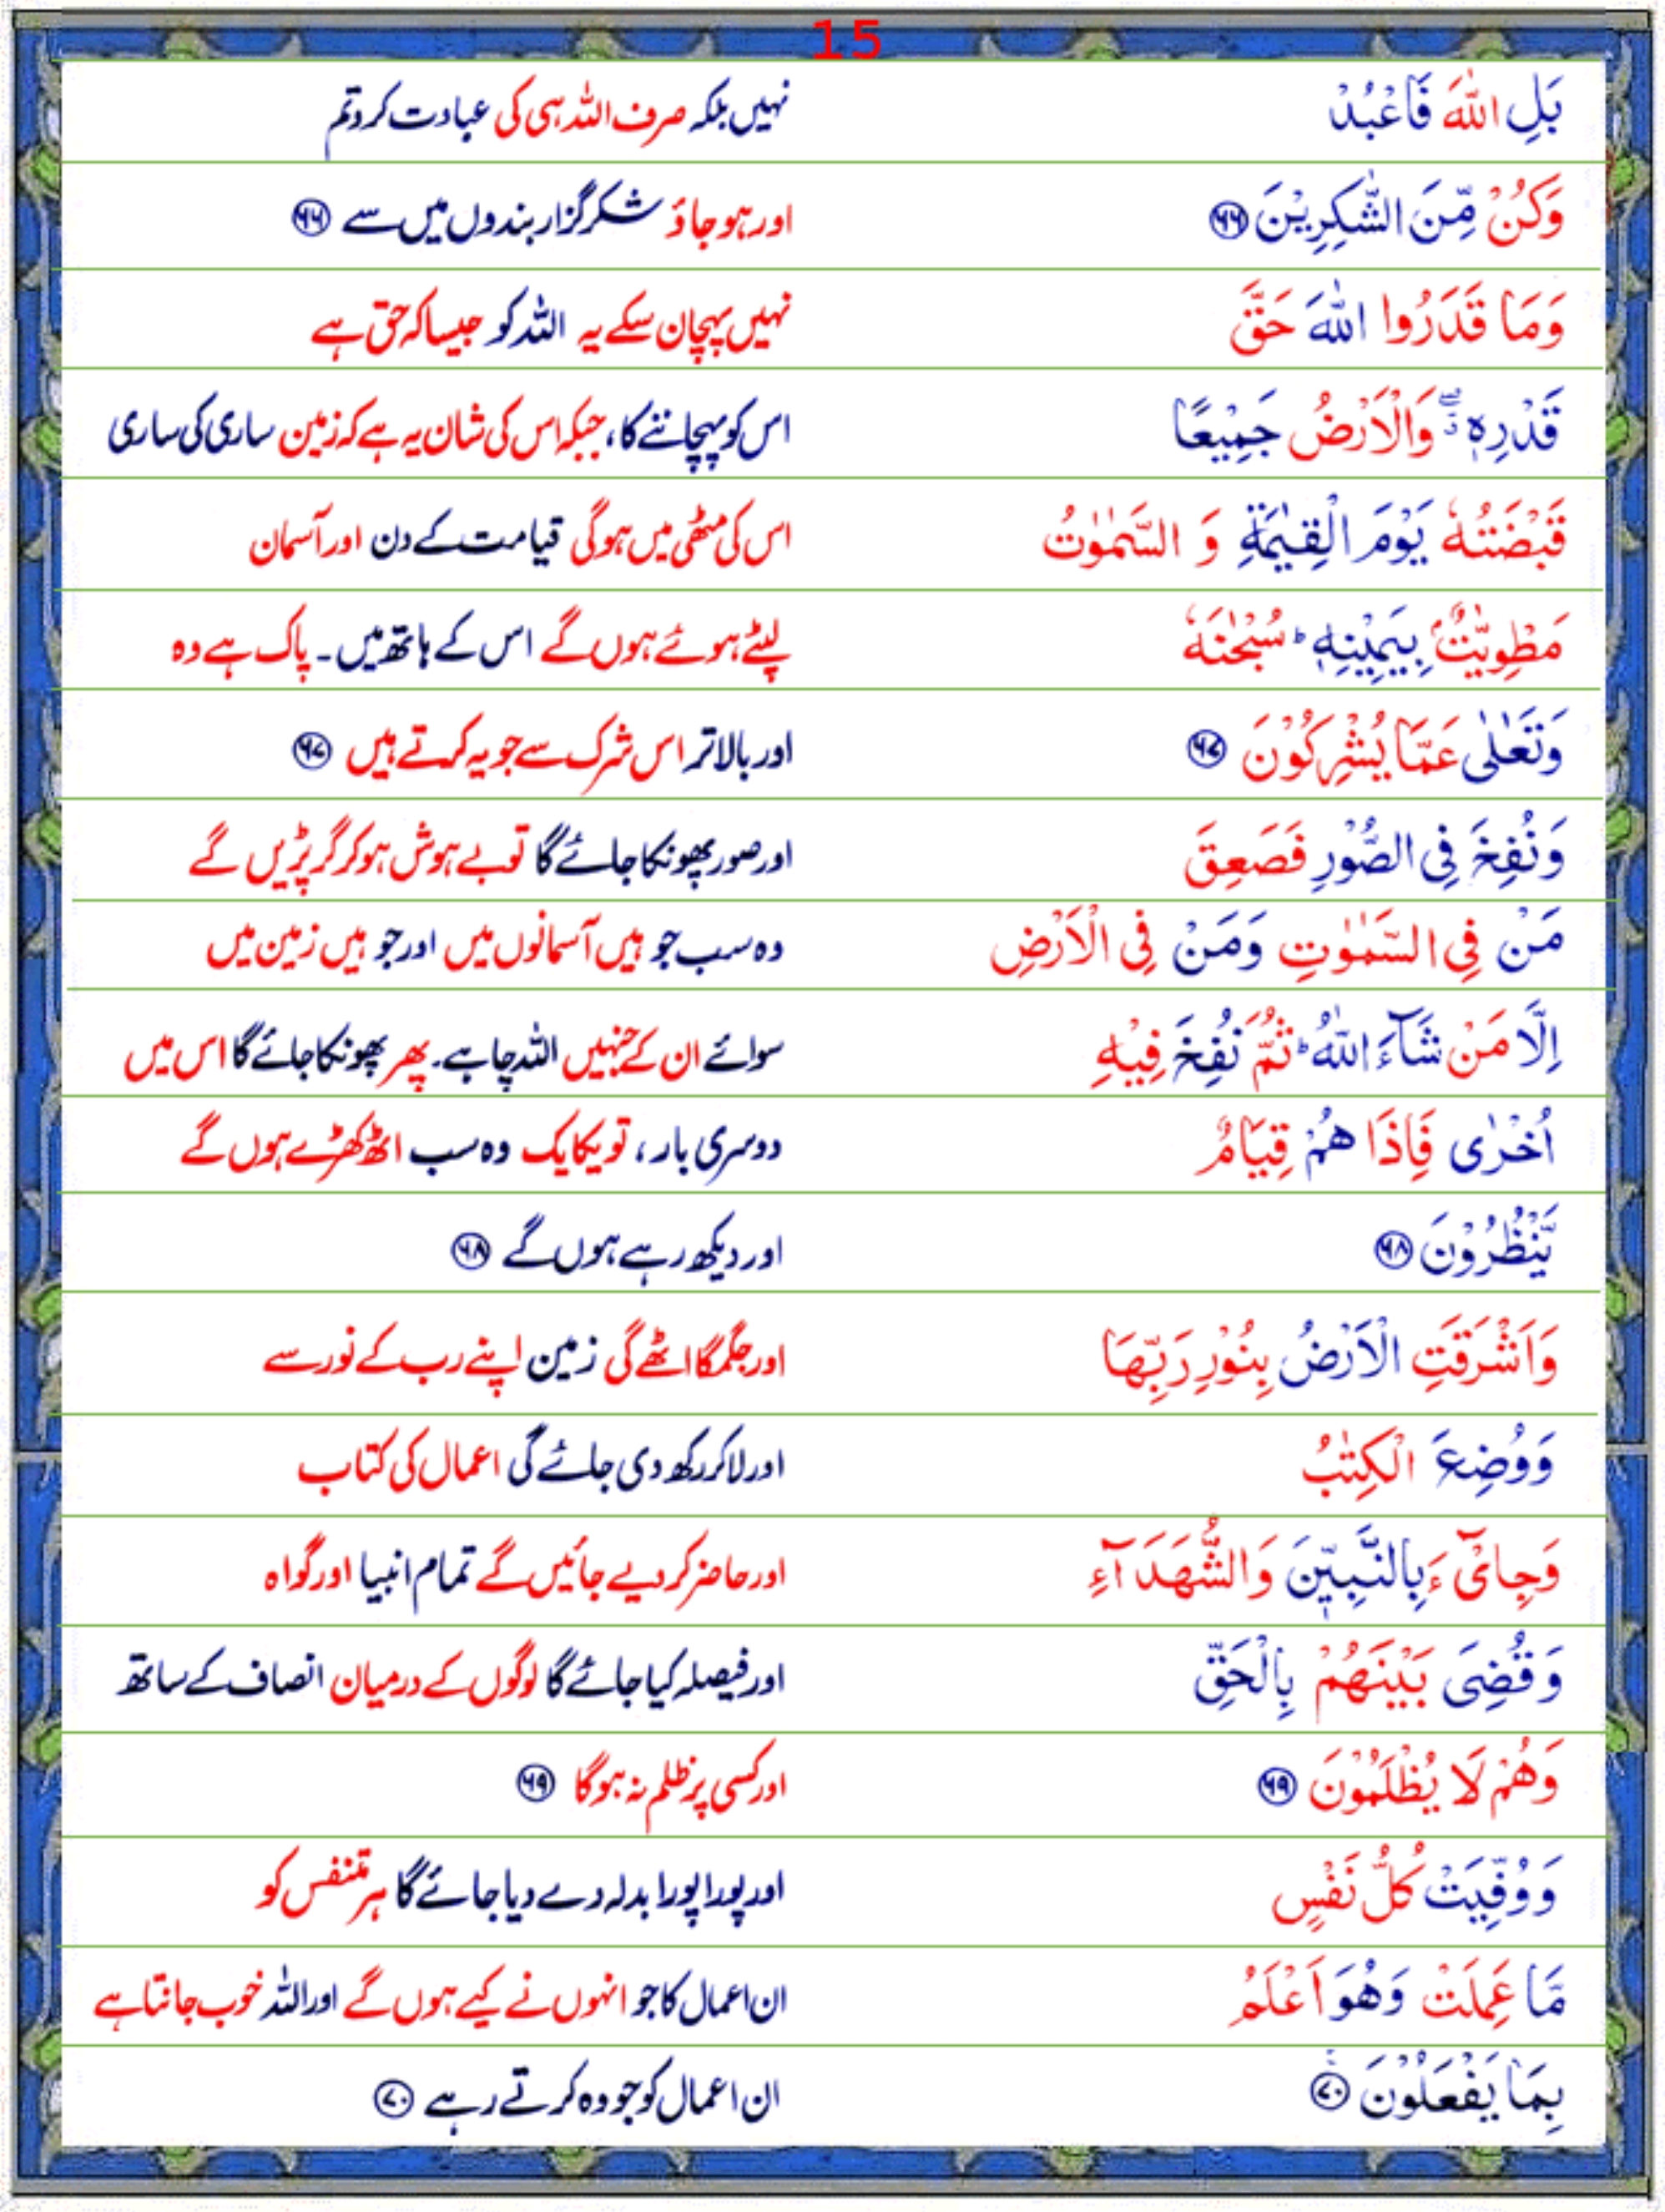 15
بَلِ اللّٰهَ فَاعْبُدْ نہیں بلکہ صرف اللہ ہی کی عبادت کرو تم
وَكُنْ مِّنَ الشّٰكِرِيْنَ ۶۶ اور ہو جاؤ شکر گزار بندوں میں سے ۶۶
وَمَا قَدَرُوا اللّٰهَ حَقَّ نہیں پہچان سکے یہ اللہ کو جیسا کہ حق ہے
قَدْرِهٖ ۖ وَالْاَرْضُ جَمِيْعًا اس کو پہچاننے کا، جبکہ اس کی شان یہ ہے کہ زمین ساری کی ساری
قَبْضَتُهٗ يَوْمَ الْقِيٰمَةِ وَ السَّمٰوٰتُ اس کی مٹھی میں ہوگی قیامت کے دن اور آسمان
مَطْوِيّٰتٌۢ بِيَمِيْنِهٖ ؕ سُبْحٰنَهٗ لپٹے ہوئے ہوں گے اس کے ہاتھ میں۔ پاک ہے وہ
وَتَعٰلٰى عَمَّا يُشْرِكُوْنَ ۶۷ اور بالاتر اس شرک سے جو یہ کرتے ہیں ۶۷
وَنُفِخَ فِى الصُّوْرِ فَصَعِقَ اور صور پھونکا جائے گا تو بے ہوش ہو کر گر پڑیں گے
مَنْ فِى السَّمٰوٰتِ وَمَنْ فِى الْاَرْضِ وہ سب جو ہیں آسمانوں میں اور جو ہیں زمین میں
اِلَّا مَنْ شَآءَ اللّٰهُ ؕ ثُمَّ نُفِخَ فِيْهِ سوائے ان کے جنہیں اللہ چاہے۔ پھر پھونکا جائے گا اس میں
اُخْرٰى فَاِذَا هُمْ قِيَامٌ دوسری بار، تو یکایک وہ سب اٹھ کھڑے ہوں گے
يَّنْظُرُوْنَ ۶۸ اور دیکھ رہے ہوں گے ۶۸
وَاَشْرَقَتِ الْاَرْضُ بِنُوْرِ رَبِّهَا اور جگمگا اٹھے گی زمین اپنے رب کے نور سے
وَوُضِعَ الْكِتٰبُ اور لا کر رکھ دی جائے گی اعمال کی کتاب
وَجِاىْٓءَ بِالنَّبِيّٖنَ وَالشُّهَدَآءِ اور حاضر کر دیے جائیں گے تمام انبیا اور گواہ
وَقُضِىَ بَيْنَهُمْ بِالْحَقِّ اور فیصلہ کیا جائے گا لوگوں کے درمیان انصاف کے ساتھ
وَهُمْ لَا يُظْلَمُوْنَ ۶۹ اور کسی پر ظلم نہ ہوگا ۶۹
وَوُفِّيَتْ كُلُّ نَفْسٍ اور پورا پورا بدلہ دے دیا جائے گا ہر متنفس کو
مَّا عَمِلَتْ وَهُوَ اَعْلَمُ ان اعمال کا جو انہوں نے کیے ہوں گے اور اللہ خوب جانتا ہے
بِمَا يَفْعَلُوْنَ ۷۰ ان اعمال کو جو وہ کرتے رہے ۷۰